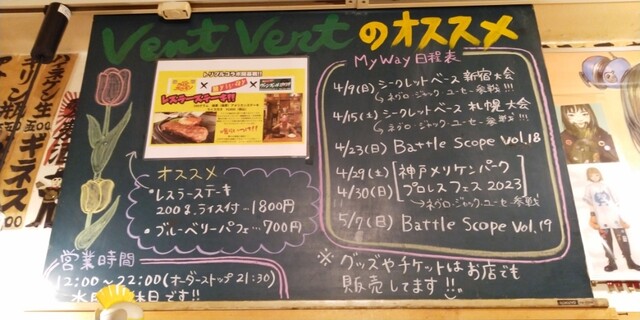 Vent Vertのオススメ
トリプルコラボ商品!!
×
×
レスラーステーキ!!
オススメ
・レスラーステーキ
200g.ライス付…1800円
・ブルーベリーパフェ…700円
営業時間
12:00〜22:00(オーダーストップ21:30)
休日です!!
MyWay日程表
4/9(日)シークレットベース新宿大会
↳ネグロ・ジャック・ユーセー参戦!!!
4/15(土)シークレットベース札幌大会
↳ネグロ・ジャック・ユーセー参戦!!!
4/23(日) Battle Scope Vol.18
4/29(土)[神戸メリケンパーク]
4/30(日)[プロレスフェス2023]
↳ネグロ・ジャック・ユーセー参戦
5/7(日) Battle Scope Vol.19
※グッズやチケットはお店でも
販売してます!!
ハネケン生
五〇〇
キリン瓶
六〇〇
ギネス